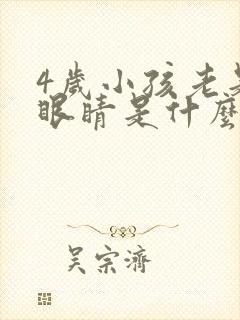 4歲小孩老是
眼睛是什麼
吴宗濟